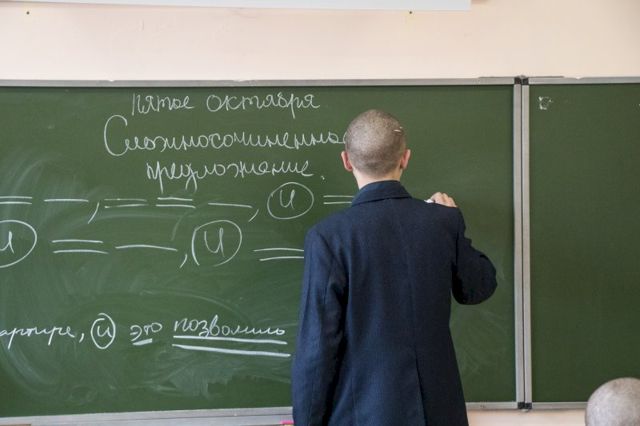 пятое октября
Сложносочиненно
предложение.
, , и
и , и
артире, и это позволило